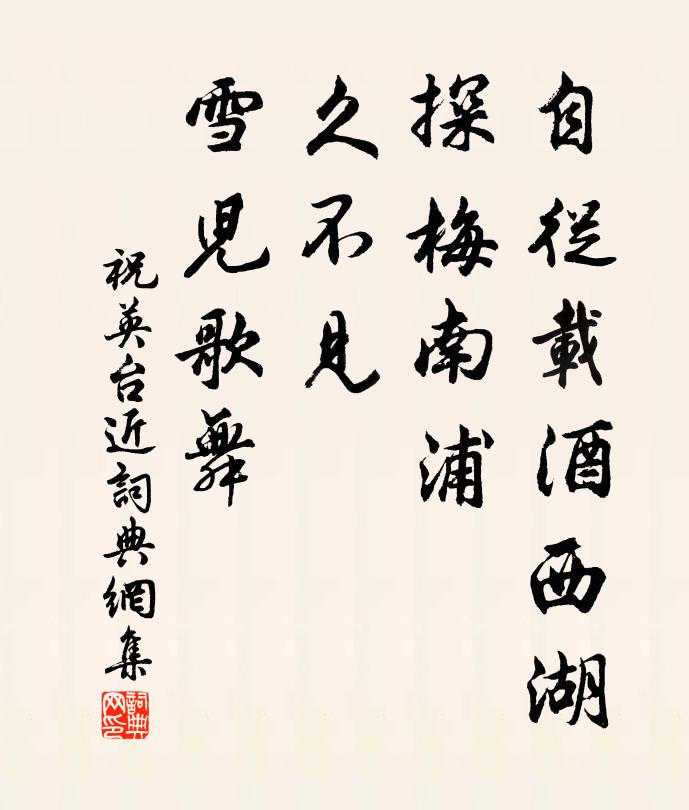 自從載酒西湖
探梅南浦
久不見
雪児歌舞
祝英台近詞典網集
詞典網印